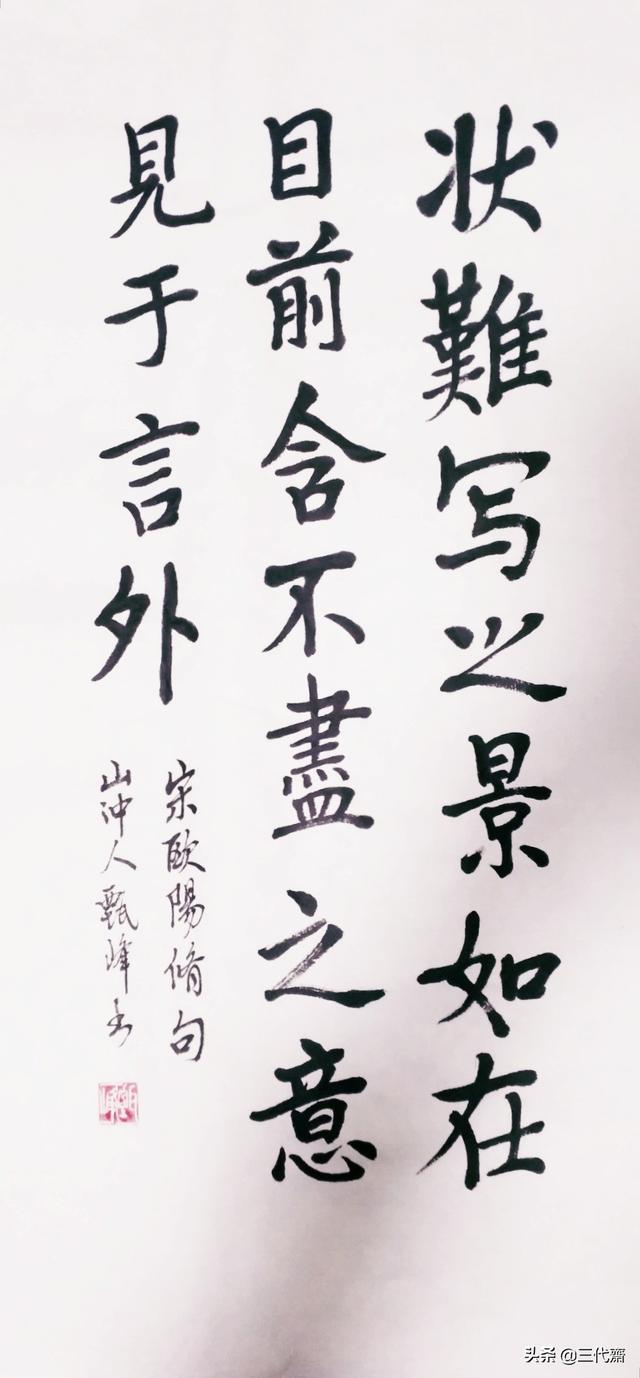 状難写之景如在
目前含不盡之意
見于言外
宋歐陽脩句
山冲人甄峰书
头条 @三代齋